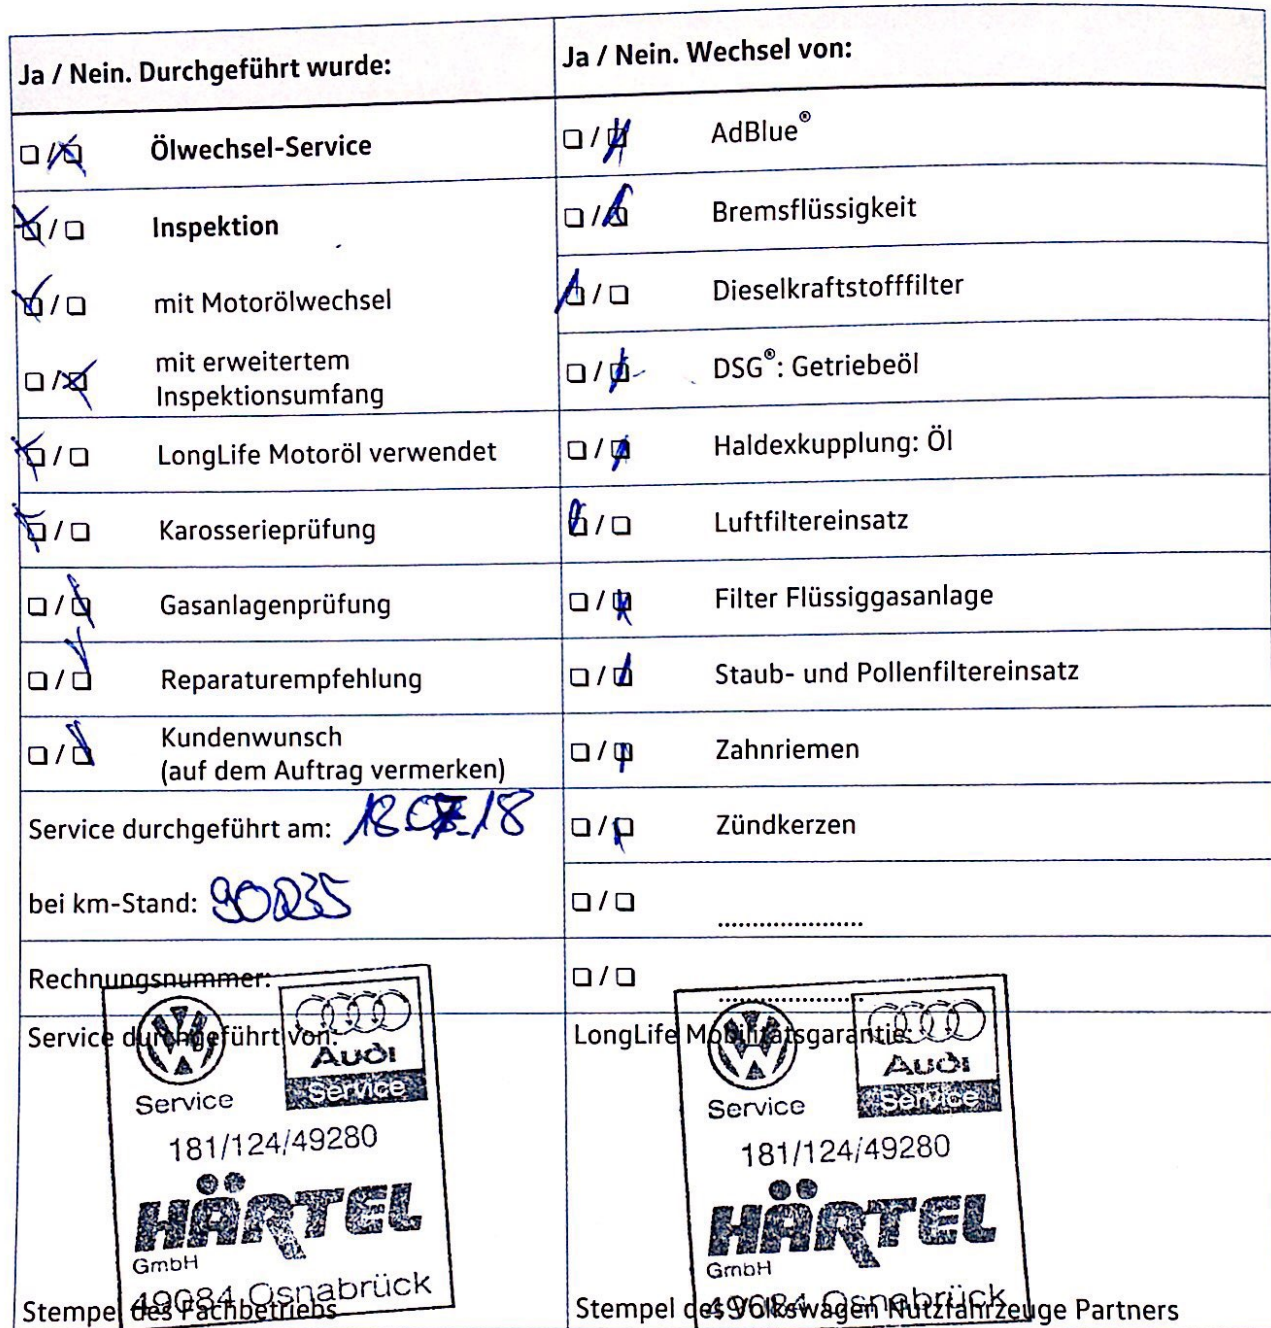 Ja / Nein. Durchgeführt wurde:
☐ / ☒ Ölwechsel-Service
☒ / ☐ Inspektion
☒ / ☐ mit Motorölwechsel
☐ / ☒ mit erweitertem
Inspektionsumfang
☒ / ☐ LongLife Motoröl verwendet
☒ / ☐ Karosserieprüfung
☐ / ☒ Gasanlagenprüfung
☐ / ☒ Reparaturempfehlung
☐ / ☒ Kundenwunsch
(auf dem Auftrag vermerken)
Service durchgeführt am: 18.07.18
bei km-Stand: 90235
Rechnungsnummer:
Service durchgeführt von:
Service
Audi
Service
181/124/49280
HÄRTEL
GmbH
49084 Osnabrück
Stempel des Fachbetriebs
Ja / Nein. Wechsel von:
☐ / ☒ AdBlue®
☐ / ☒ Bremsflüssigkeit
☒ / ☐ Dieselkraftstofffilter
☐ / ☒ DSG®: Getriebeöl
☐ / ☒ Haldexkupplung: Öl
☒ / ☐ Luftfiltereinsatz
☐ / ☒ Filter Flüssiggasanlage
☐ / ☒ Staub- und Pollenfiltereinsatz
☐ / ☒ Zahnriemen
☐ / ☒ Zündkerzen
☐ / ☐ ....................
☐ / ☐ ....................
LongLife Mobilitätsgarantie:
Service
Audi
Service
181/124/49280
HÄRTEL
GmbH
49084 Osnabrück
Stempel des Volkswagen Nutzfahrzeuge Partners